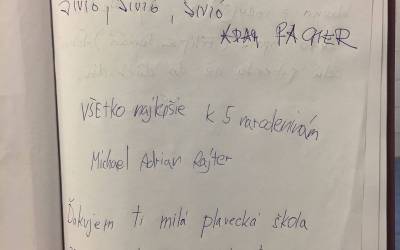 živió, živió, živió
ADAM PAGER
VŠETKO najlepšie k 5 narodeninám
Michael Adrian Rajter
Ďakujem ti milá plavecká škola